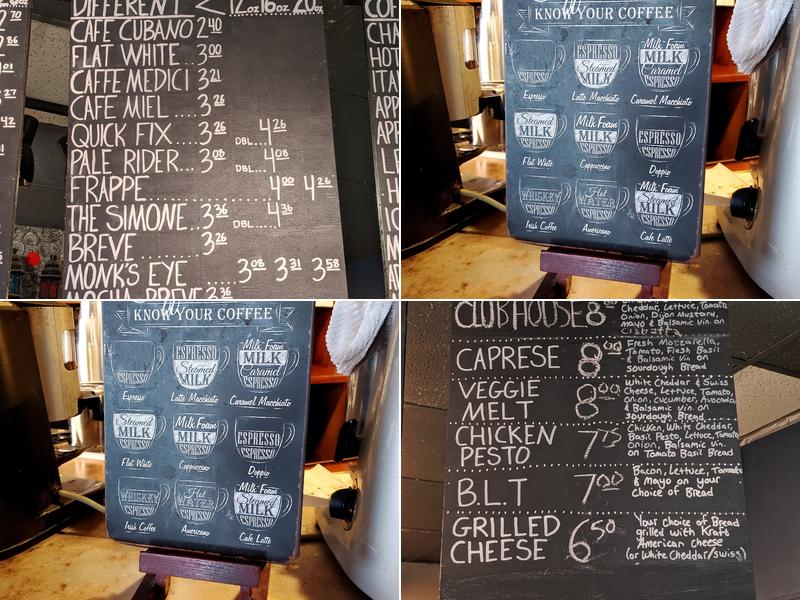 DIFFERENT < 12oz 16oz 20oz
CAFE CUBANO 2 40
FLAT WHITE.. 3 00
CAFFE MEDICI 3 21
CAFE MIEL.... 3 26
QUICK FIX.... 3 26 DBL... 4 26
PALE RIDER... 3 08 DBL... 4 08
FRAPPE ........ 4 00 4 26
THE SIMONE.. 3 36 DBL.... 4 36
BREVE ........ 3 26
MONK'S EYE ...... 3 08 3 31 3 58
MOCHA BREVE 3 36
70
86
01
27
42
COF
CHA
HOT
ITA
APP
APP
KNOW YOUR COFFEE
ESPRESSO
Espresso
ESPRESSO
Steamed
MILK
Latte Macchiato
Milk Foam
MILK
Caramel
ESPRESSO
Caramel Macchiato
Steamed
MILK
ESPRESSO
Flat White
Milk Foam
MILK
ESPRESSO
Cappuccino
ESPRESSO
Doppio
WHISKEY
ESPRESSO
Irish Coffee
Hot
WATER
ESPRESSO
Americano
Milk Foam
Steamed
MILK
ESPRESSO
Cafe Latte
KNOW YOUR COFFEE
ESPRESSO
Espresso
ESPRESSO
Steamed
MILK
Latte Macchiato
Milk Foam
MILK
Caramel
ESPRESSO
Caramel Macchiato
Steamed
MILK
ESPRESSO
Flat White
Milk Foam
MILK
ESPRESSO
Cappuccino
ESPRESSO
Doppio
WHISKEY
ESPRESSO
Irish Coffee
Hot
WATER
ESPRESSO
Americano
Milk Foam
Steamed
MILK
ESPRESSO
Cafe Latte
CLUBHOUSE 8
Cheddar, Lettuce, Tomato
Onion, Dijon Mustard,
Mayo & Balsamic Vin. on
CAPRESE 8 00
Fresh Mozzarella,
Tomato, Flesh Basil
& Balsamic Vin on
sourdough Bread
VEGGIE
MELT 8 00
White Cheddar & Swiss
Cheese, Lettuce, Tomato,
onion, cucumber, Avocado
& Balsamic Vin. on
sourdough Bread
CHICKEN
PESTO 7 75
Chicken, White Cheddar,
Basil Pesto, Lettuce, Tomato
Onion, Balsamic Vin.
on Tomato Basil Bread
B.L.T 7 00
Bacon, Lettuce, Tomato
& Mayo on your
choice of Bread
GRILLED
CHEESE 6 50
Your choice of Bread
grilled with Kraft
American cheese
(or White Cheddar/Swiss)